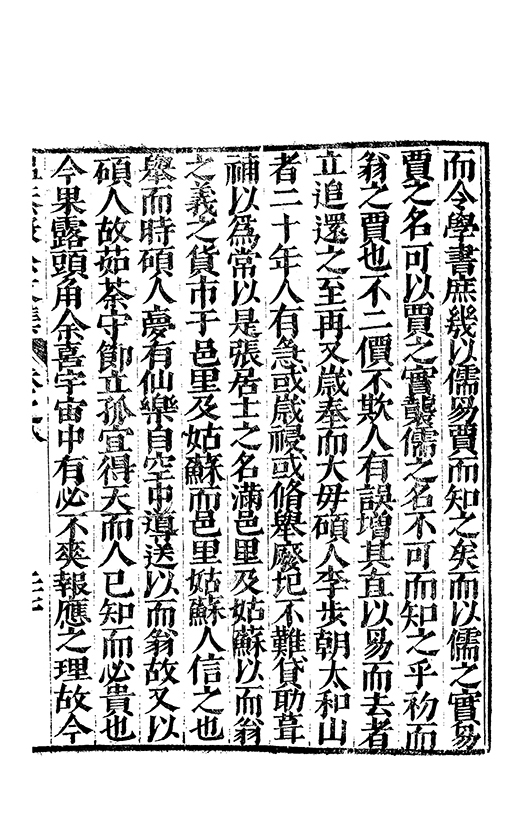 而令學書庶幾以儒易賈而知之矣而以儒之實易
賈之名可以賈之實襲儒之名不可而知之乎初而
翁之賈也不二價不欺人有誤增其直以易而去者
立追還之至再又歲奉而大母碩人李步朝太和山
者二十年人有急或歲祲或脩舉廢圯不難貸助葺
補以為常以是張居士之名滿邑里及姑蘇以而翁
之義之貸市于邑里及姑蘇而邑里姑蘇人信之也
舉而時碩人夢有仙樂自空中導送以而翁故又以
碩人故茹荼守節立孤宜得天而人已知而必貴也
今果露頭角余喜宇宙中有必不爽報應之理故今